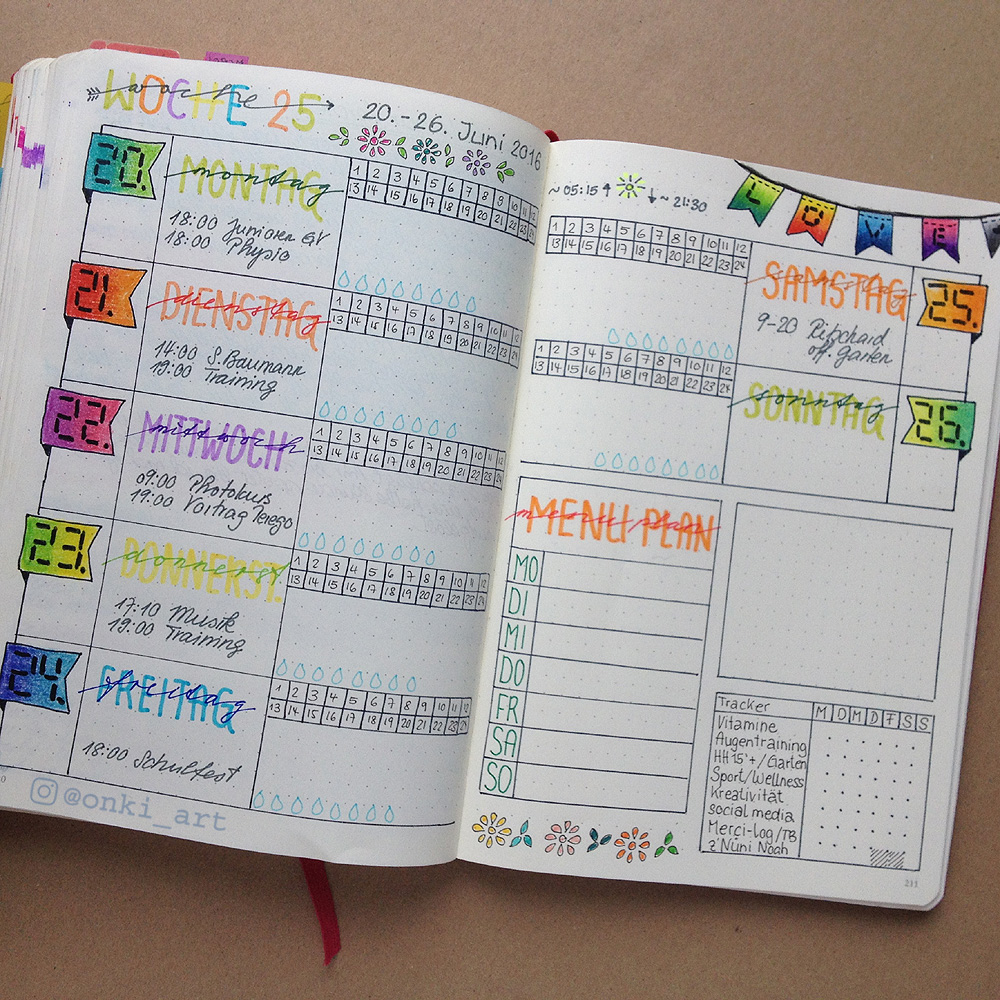 WOCHE 25
woche
20.-26. Juni 2016
20.
MONTAG
montag
18:00 Junioren GV
18:00 Physio
1 2 3 4 5 6 7 8 9 10 11 12
13 14 15 16 17 18 19 20 21 22 23 24
21.
DIENSTAG
dienstag
14:00 S.Baumann
19:00 Training
1 2 3 4 5 6 7 8 9 10 11 12
13 14 15 16 17 18 19 20 21 22 23 24
22.
MITTWOCH
mittwoch
09:00 Photokurs
19:00 Vortrag
1 2 3 4 5 6 7 8 9 10 11 12
13 14 15 16 17 18 19 20 21 22 23 24
23.
DONNERST.
donnerst.
17:10 Musik
19:00 Training
1 2 3 4 5 6 7 8 9 10 11 12
13 14 15 16 17 18 19 20 21 22 23 24
24.
FREITAG
freitag
18:00 Schulfest
1 2 3 4 5 6 7 8 9 10 11 12
13 14 15 16 17 18 19 20 21 22 23 24
@onki_art
~ 05:15 ↑ ↓ ~ 21:30
LOVE
1 2 3 4 5 6 7 8 9 10 11 12
13 14 15 16 17 18 19 20 21 22 23 24
SAMSTAG
samstag
25.
9-20
off. Garten
1 2 3 4 5 6 7 8 9 10 11 12
13 14 15 16 17 18 19 20 21 22 23 24
SONNTAG
sonntag
26.
MENU PLAN
menu plan
MO
DI
MI
DO
FR
SA
SO
Tracker M D M D F S S
Vitamine
Augentraining
HH 15'+/Garten
Sport/Wellness
Kreativität
social media
Merci-log/TB
z'Nüni Noah
211